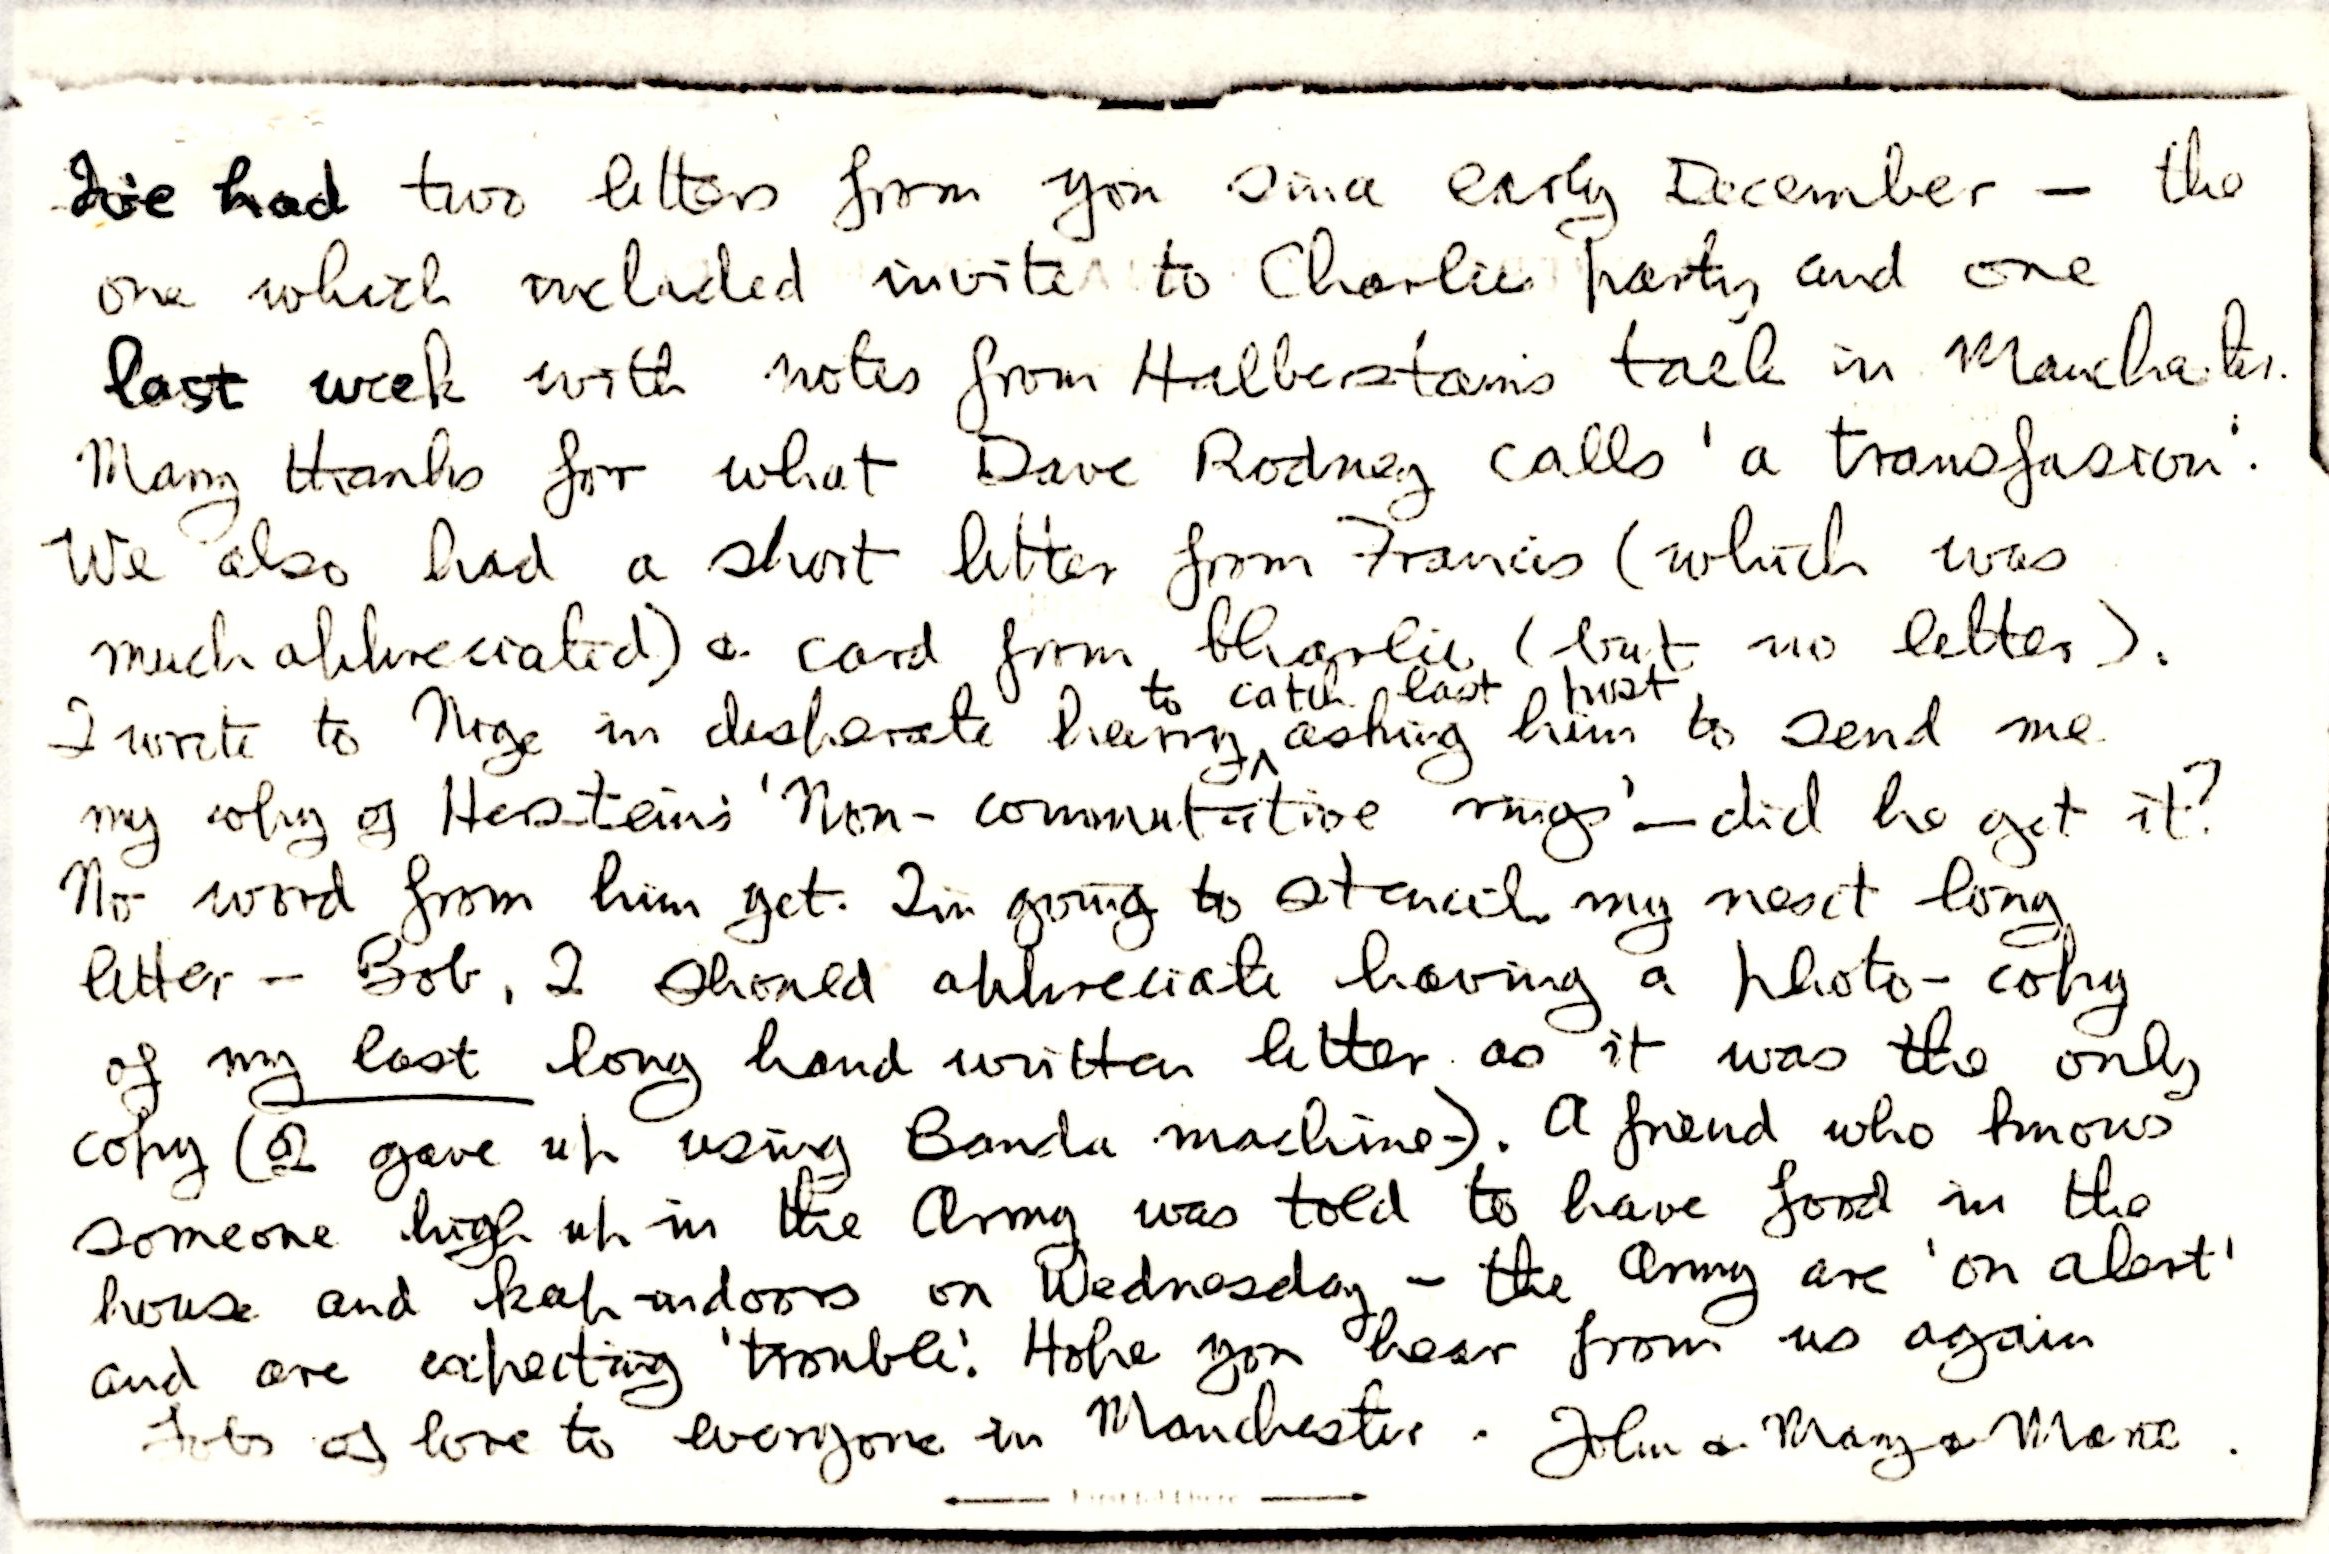 I've had two letters from you since early December – the
one which included invite to Charlie's party and one
last week with notes from Halberstam's talk in Manchester.
Many thanks for what Dave Rodney calls 'a transfusion'.
We also had a short letter from Francis (which was
much appreciated) & card from Charlie (but no letter).
to catch last post
I wrote to Nige in desperate hurry ^ asking him to send me
my copy of Herstein's 'Non-commutative rings' – did he get it?
No word from him yet. I'm going to stencil my next long
letter – Bob, I should appreciate having a photo-copy
of my last long hand written letter as it was the only
copy (I gave up using Banda machine). A friend who knows
someone high up in the Army was told to have food in the
house and keep indoors on Wednesday – the Army are 'on alert'
and are expecting 'trouble'. Hope you hear from us again
Lots of love to everyone in Manchester. John & Mary & Marie.
First fold here